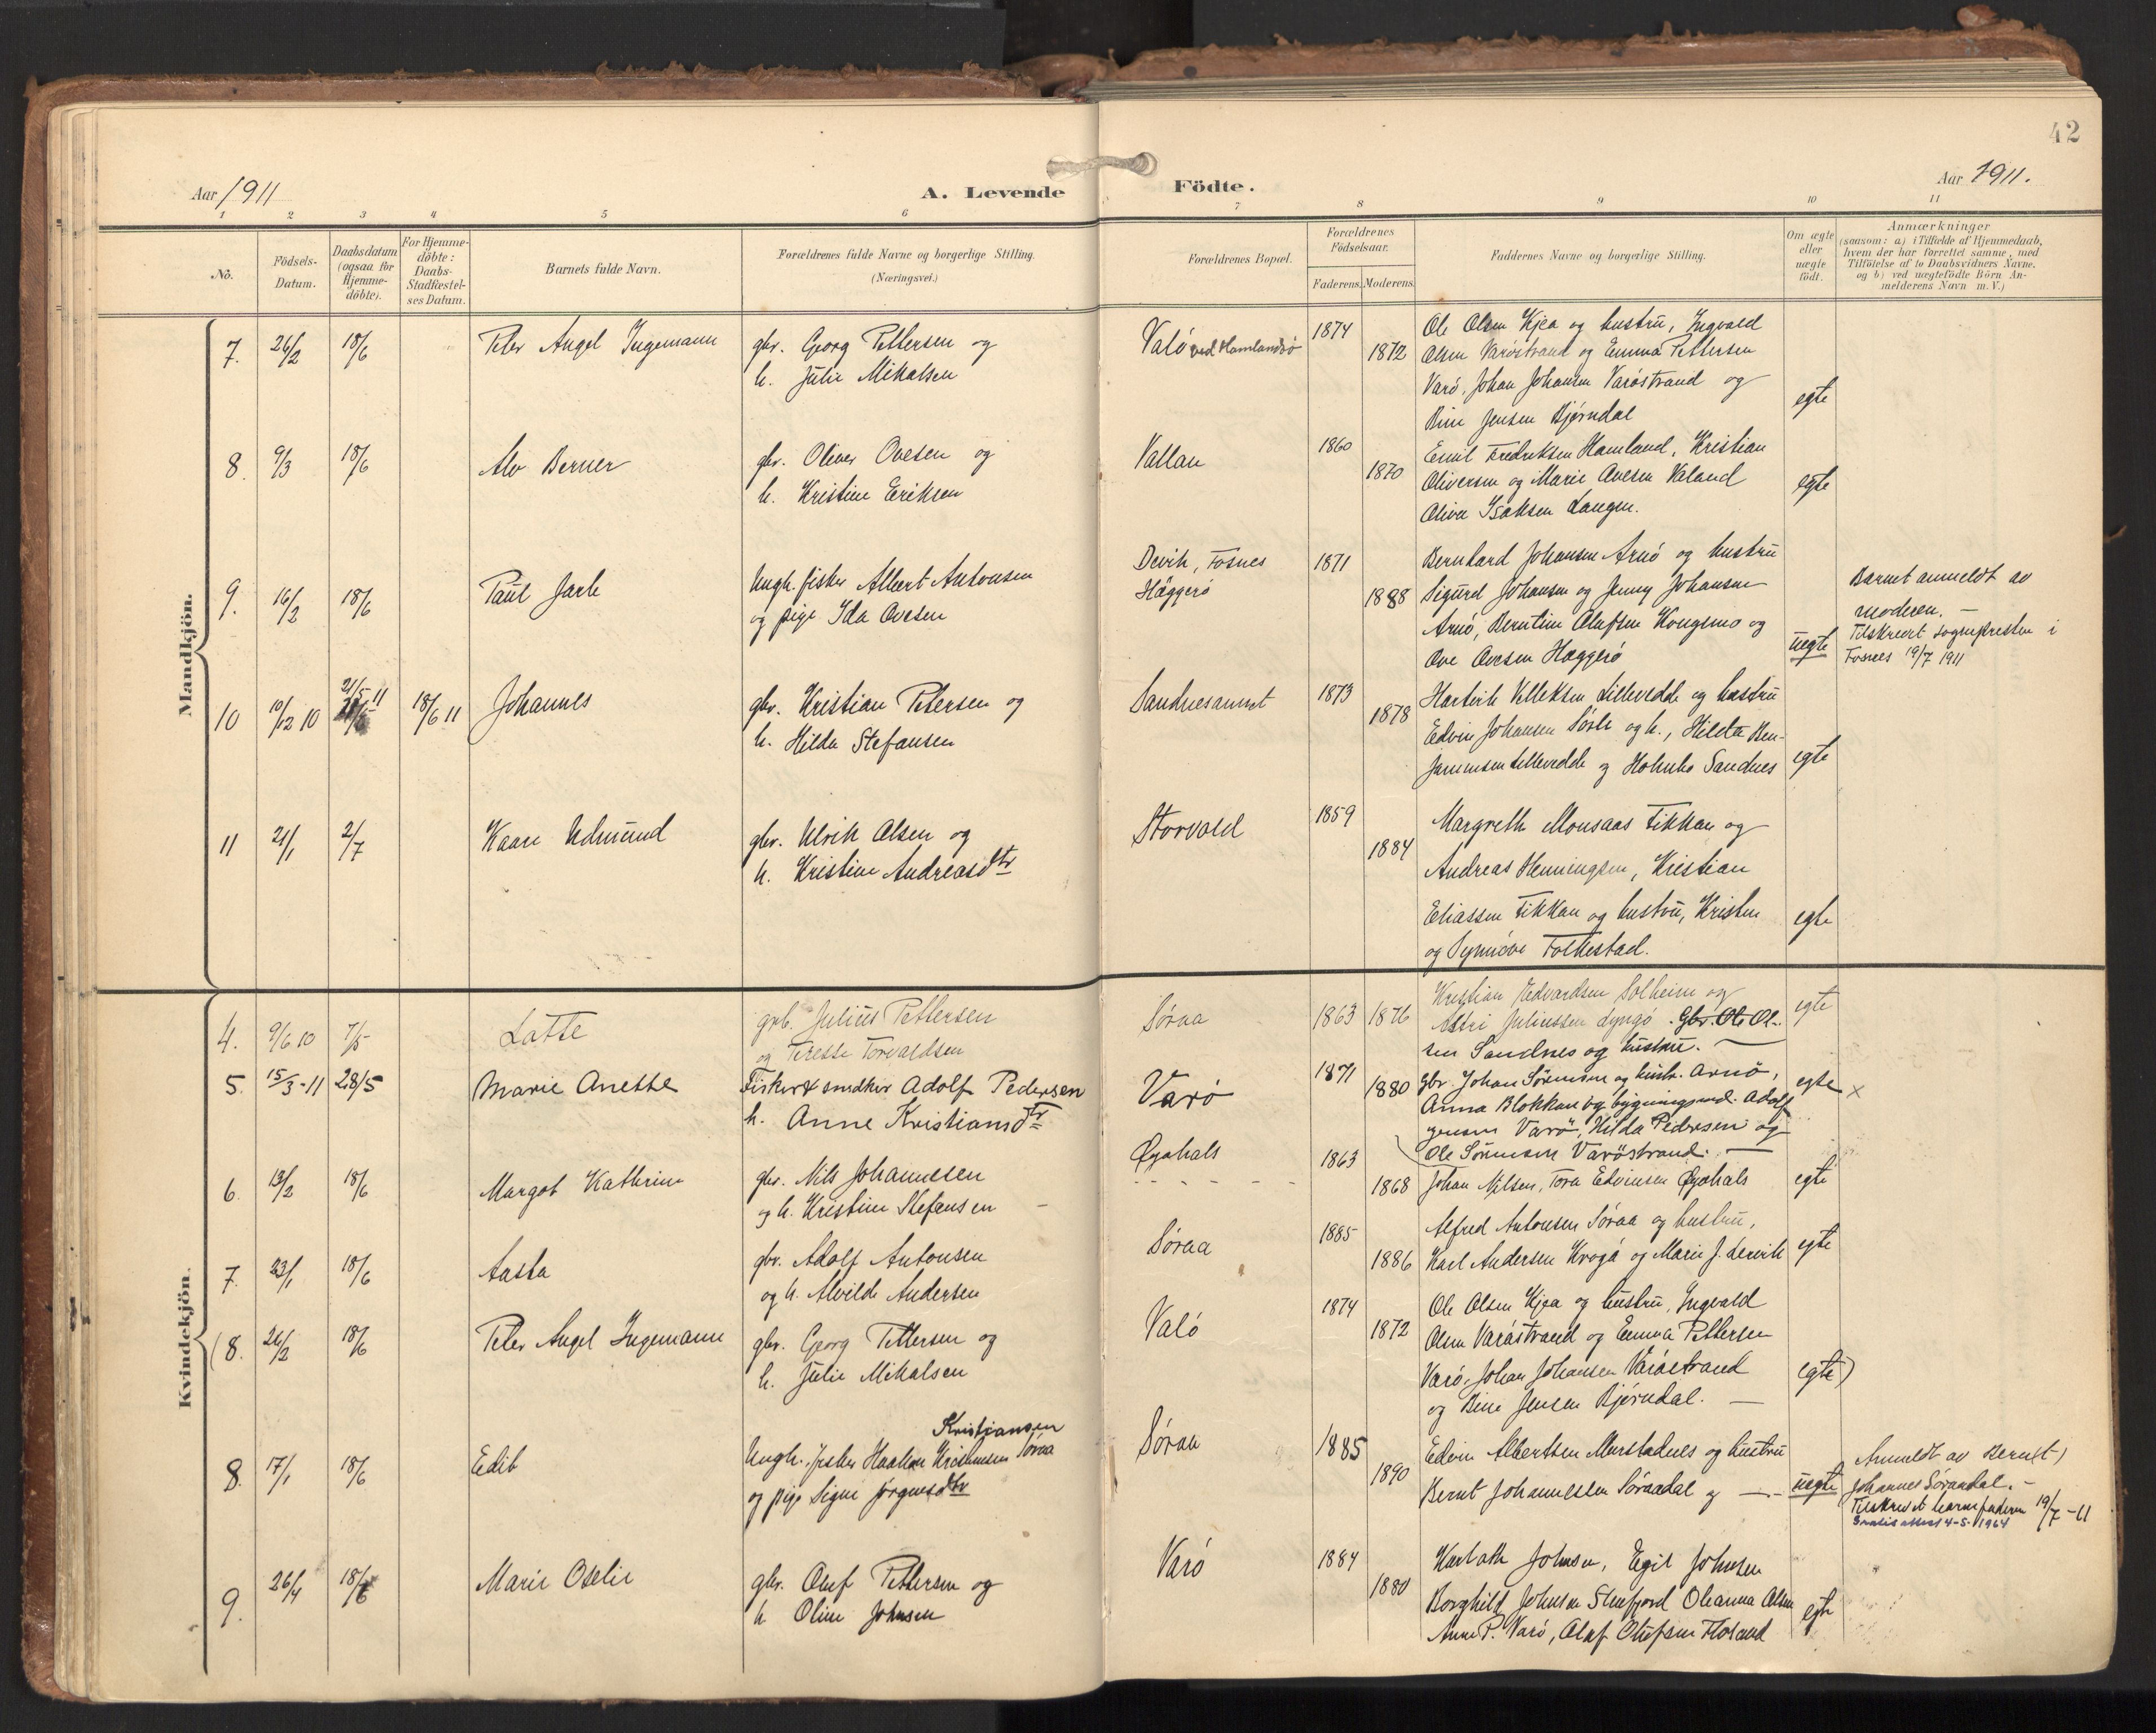 42
Aar 1911
A. Levende
Födte.
Aar 1911.
1 2 3 4 5 6 7 8 9 10 11
No.
Födsels-
Datum.
Daabsdatum
(ogsaa for
Hjemme-
döbte).
For Hjemme-
döbte:
Daabs-
Stadfæstel-
ses Datum.
Barnets fulde Navn.
Forældrenes fulde Navne og borgerlige Stilling.
(Næringsvei.)
Forældrenes Bopæl.
Forældrenes
Födselsaar.
Faderens. Moderens.
Faddernes Navne og borgerlige Stilling.
Om ægte
eller
uægte
födt.
Anmærkninger
(saasom: a) i Tilfælde af Hjemmedaab,
hvem der har forrettet samme, med
Tilföielse af to Daabsvidners Navne,
og b) ved uægtefödte Börn An-
melderens Navn m. V.)
Mandkjön.
7. 26/2 18/6 Peter Angel Ingemann
gbr. Georg Pettersen og
h. Julie Mikalsen
Valö ved Hamlandsö
1874 1872
Ole Olsen Kjea og hustru, Ingvald
Olsen Varöstrand og Emma Pettersen
Varö, Johan Johansen Varöstrand og
Bine Jensen Bjørndal
egte
8. 9/3 18/6 Alv Berner
gbr. Oliver Ovesen og
h. Kristine Eriksen
Vallan
1860 1870
Emil Fredriksen Hamland, Kristian
Oliversen og Marie Ovesen Valand
Oliver Isaksen Langen.
egte
9. 16/2 18/6 Paul Jarle
Ungk. fisker Albert Antonsen
og pige Ida Ovesen
Devik, Fosnes
Häggerö
1871 1888
Bernhard Johansen Arnö og hustru
Sigurd Johansen og Jenny Johansen
Arnö, Berntine Olafsen Kongsmo og
Ove Ovesen Haggerö
uegte
Barnet anmeldt av
moderen. —
Tilskrevet sognepresten i
Fosnes 19/7 1911
10 10/12 10 21/5 11 18/6 11 Johannes
gbr. Kristian Petersen og
h. Hilda Stefansen
Sandnesaunet
1873 1878
Hartvik Velleksen Lillevedde og hustru
Edvin Johansen Sörle og h., Hilda Ben-
jaminsen Lillevedde og Sandnes
egte
11 21/1 2/7 Kaare Edmund
gbr. Ulrik Olsen og
h. Kristine Andreasdtr
Storvald
1859 1884
Margreth Monsaas Fikkan og
Andreas Henningsen, Kristian
Eliassen Fikkan og hustru, Kristen
og Synnöve Folkestad.
egte
Kvindekjön.
4. 9/6 10 7/5 Lotte
grb. Julius Pettersen
og Terese Torvaldsen
Söraa
1863 1876
Kristian Edvardsen Solheim og
Astri Juliussen Lyngö. Gbr. Ole Ol-
sen Sandnes og hustru. —
egte
5. 15/3-11 28/5 Marie Anette
Fisker & smedker Adolf Pedersen
h. Anne Kristiansdtr
Varö
1871 1880
Gbr. Johan Sörensen og hustr. Arnö,
Anna Blokkan og bygningsmd. Adolf
Jensen Varö, Hilda Pedersen og
Ole Sörensen Varöstrand. —
egte x
6. 13/2 18/6 Margot Kathrine
gbr. Nils Johannesen
og h. Kristine Stefansen
Øyahals
1863 1868
Johan Nilsen, Tora Edvinsen Øyahals
egte
7. 23/1 18/6 Aasta
gbr. Adolf Antonsen
og h. Alvilde Andersen
Söraa
1885 1886
Alfred Antonsen Söraa og hustru,
Karl Andersen Krogö og Marie J. Lervik
egte
(8. 26/2 18/6 Peter Angel Ingemann
gbr. Georg Pettersen og
h. Julie Mikalsen
Valö
1874 1872
Ole Olsen Kjea og hustru, Ingvald
Olsen Varöstrand og Emma Pettersen
Varö, Johan Johansen Varöstrand
og Bine Jensen Bjørndal. —
egte)
8. 17/1 18/6 Edit
Kristiansen
Ungk. fisker Haakon Kristensen Söraa
og pige Signe Jörgensdtr
Söraa
1885 1890
Edvin Albertsen Murstadnes og hustru
Bernt Johannessen Söraadal og —
uegte
Anmeldt av Bernt
Johannes Söraadal. -
Tilskrevet barnefaderen 19/7-11
Gratis attest 4-5-1964
9. 26/4 18/6 Marie Oselie
gbr. Oluf Pettersen og
h Oline Johnsen
Varö
1884 1880
Johnsen, Egil Johnsen
Borghild Johnsen Oleanna Olsen
Anne P. Varö, Olaf Olufsen
egte